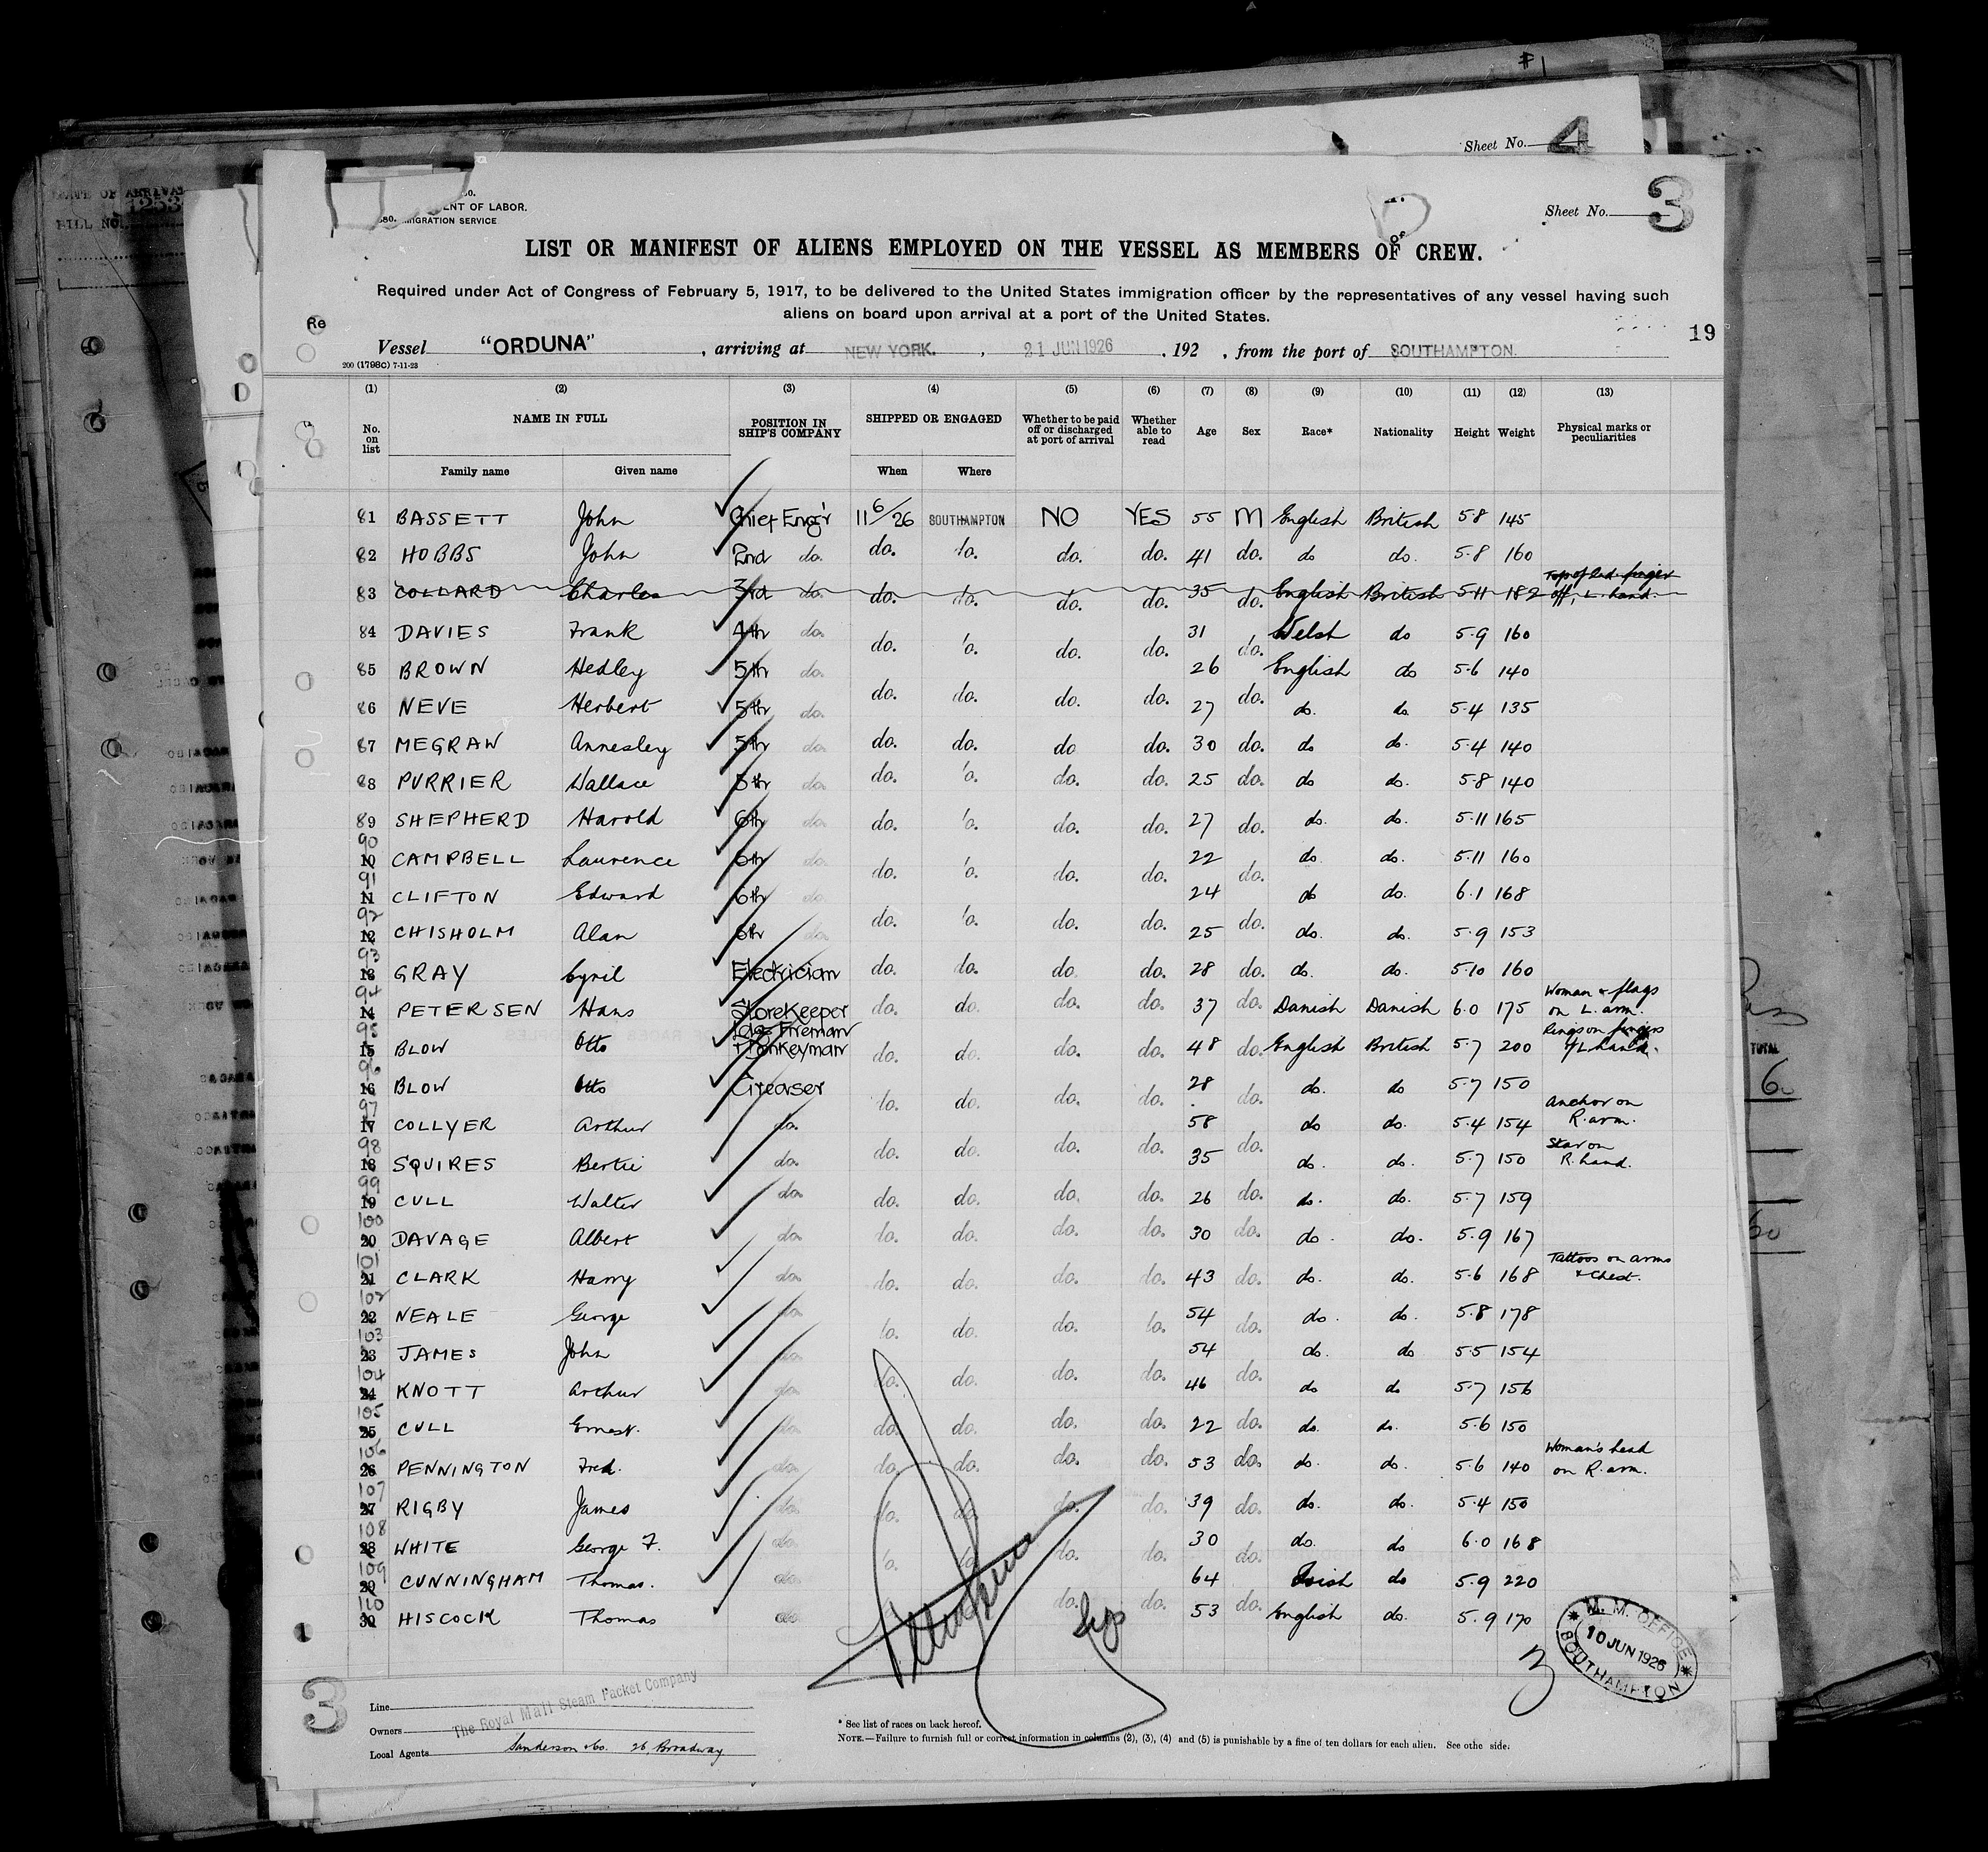 #1
Sheet No. 4
DATE OF ARRIVAL
1233
BILL NO.
ENT OF LABOR.
MIGRATION SERVICE
Sheet No. 3
of
LIST OR MANIFEST OF ALIENS EMPLOYED ON THE VESSEL AS MEMBERS OF CREW.
Required under Act of Congress of February 5, 1917, to be delivered to the United States immigration officer by the representatives of any vessel having such
aliens on board upon arrival at a port of the United States.
Re
19
Vessel "ORDUNA", arriving at NEW YORK., 21 JUN 1926, 192 , from the port of SOUTHAMPTON.
200 (1798C) 7-11-23
(1) (2) (3) (4) (5) (6) (7) (8) (9) (10) (11) (12) (13)
No. on list NAME IN FULL POSITION IN SHIP'S COMPANY SHIPPED OR ENGAGED Whether to be paid off or discharged at port of arrival Whether able to read Age Sex Race* Nationality Height Weight Physical marks or peculiarities
Family name Given name When Where
81 BASSETT John Chief Eng'r 11 6/26 SOUTHAMPTON NO YES 55 M English British 5.8 145
82 HOBBS John 2nd do. do. do. do. do. 41 do. do do. 5.8 160
83 COLLARD Charles 3rd do. do. do. do. do. 35 do. English British 5.11 182 Top of 2nd. finger off, L. hand.
84 DAVIES Frank 4th do. do. do. do. do. 31 do. Welsh do 5.9 160
85 BROWN Hedley 5th do. 26 English do 5.6 140
86 NEVE Herbert 5th do. do. do. do. do. 27 do. do. do. 5.4 135
87 MEGRAW Annesley 5th do. do. do. do do. 30 do. do do. 5.4 140
88 PURRIER Wallace 5th do. do. do. do. do. 25 do. do do. 5.8 140
89 SHEPHERD Harold 6th do. do. do. do. do. 27 do. do. do. 5.11 165
90 10 CAMPBELL Laurence 6th do. do. do. do. do. 22 do. do do. 5.11 160
91 11 CLIFTON Edward 6th do. 24 do do. 6.1 168
92 12 CHISHOLM Alan 6th do. do. do. do. do. 25 do. do. do. 5.9 153
93 13 GRAY Cyril Electrician do. do. do. do. 28 do. do. do. 5.10 160
94 14 PETERSEN Hans StoreKeeper do. do. do. do. 37 do. Danish Danish 6.0 175 Woman & flags on L. arm.
95 15 BLOW Otto Ldg Fireman & Donkeyman do. do. do. do. 48 do. English British 5.7 200 Rings on fingers of L hand.
96 16 BLOW Otto Greaser do. do. do. do. 28 do. do. do 5.7 150
97 17 COLLYER Arthur do. 58 do do. 5.4 154 Anchor on R. arm.
98 18 SQUIRES Bertie do. do. do. do. do. 35 do. do. do. 5.7 150 Scar on R. hand.
99 19 CULL Walter do. do. do. do. do. 26 do. do. do. 5.7 159
100 20 DAVAGE Albert do. do. do. do. do. 30 do. do. do. 5.9 167
101 21 CLARK Harry do. do. do. do. do. 43 do. do. do. 5.6 168 Tattoos on arms & Chest.
102 22 NEALE George do. do. do. do. do. 54 do. do. do. 5.8 178
103 23 JAMES John do. 54 do. do 5.5 154
104 24 KNOTT Arthur do. do. do. do. do. 46 do. do do 5.7 156
105 25 CULL Ernest. do. do. do. do. do. 22 do. do. do. 5.6 150
106 26 PENNINGTON Fred. do. do. do. do. do. 53 do. do. do. 5.6 140 Woman's head on R. arm.
107 27 RIGBY James do. do. do. do. do. 39 do. do. do. 5.4 150
108 28 WHITE George F. do. do. do. do. do. 30 do. do. do 6.0 168
109 29 CUNNINGHAM Thomas. do. 64 Irish do 5.9 220
110 30 HISCOCK Thomas do. do. do. 53 do. English do. 5.9 170
M. M. OFFICE
10 JUN 1926
SOUTHAMPTON
3
3
Line
Owners The Royal Mail Steam Packet Company
Local Agents Sanderson & Co. 26 Broadway
* See list of races on back hereof.
NOTE.—Failure to furnish full or correct information in columns (2), (3), (4) and (5) is punishable by a fine of ten dollars for each alien. See othe side.
TOTAL